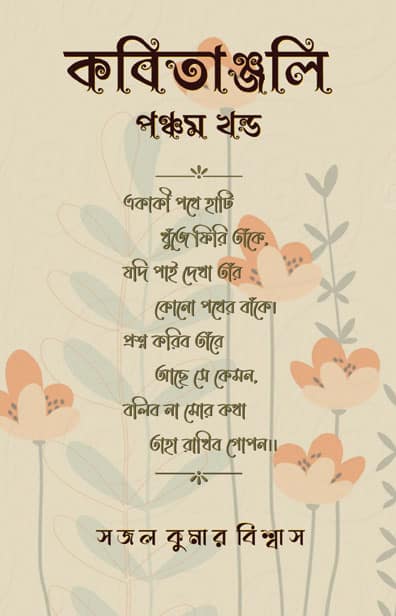 কবিতাঞ্জলি
পঞ্চম খন্ড
একাকী পথে হাটি
খুঁজে ফিরি তাঁকে,
যদি পাই দেখা তাঁর
কোনো পথের বাঁকে।
প্রশ্ন করিব তাঁরে
আছে সে কেমন,
বলিব না মোর কথা
তাহা রাখিব গোপন।।
সজল কুমার বিশ্বাস